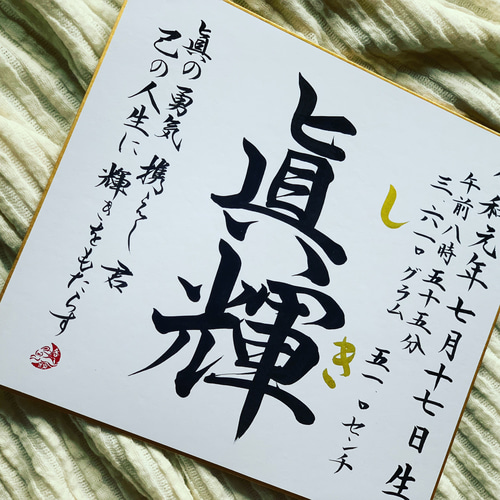 令和元年七月十七日生
午前八時五十五分
三.六一〇グラム
五一.〇センチ
しき
眞輝
眞の勇気 携えし 君
己の人生に 輝きをもたらす